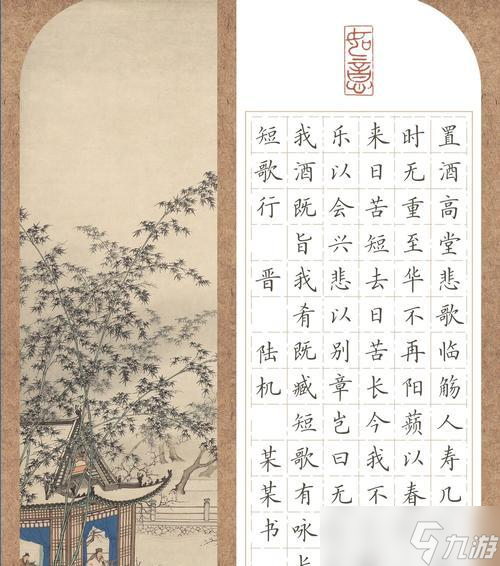 如意
置酒高堂悲歌临觞人寿几
时无重至华不再阳蘋以春
来日苦短去日苦长今我不
乐以会兴悲以别章岂曰无
我酒既旨我肴既臧短歌有咏
短歌行 晋 陆机 某某书
九游